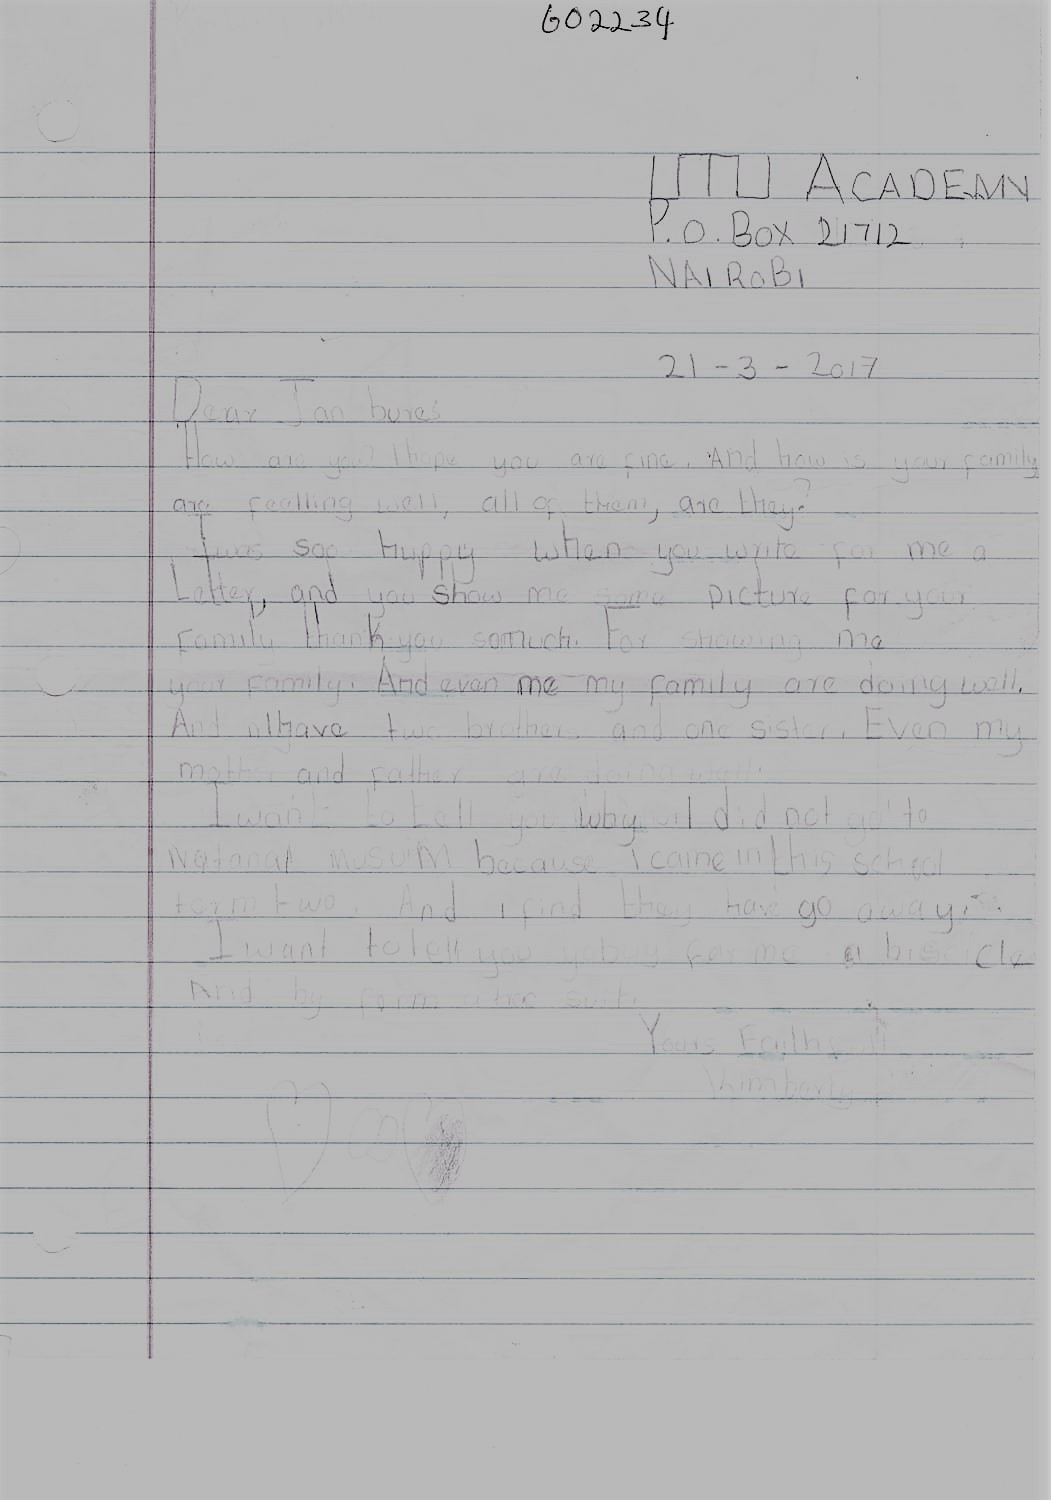 602234
UTU ACADEMY
P.O. BOX 21712
NAIROBI
21-3-2017
Dear Jan bures
How are you? I hope you are fine. And how is your family
are fealling well, all of them, are they?
I was soo huppy when you write for me a
Letter, and you show me some picture for your
Family thank you somuch. For showing me
your family. And even me my family are doing well.
And I have two brother and one sister. Even my
mother and father are doing well.
I want to tell you why I did not go to
Natonal musuM because I came in this school
term two. And i find they have go away.
I want to tell you for me a
And by for
Yours
Kimberly